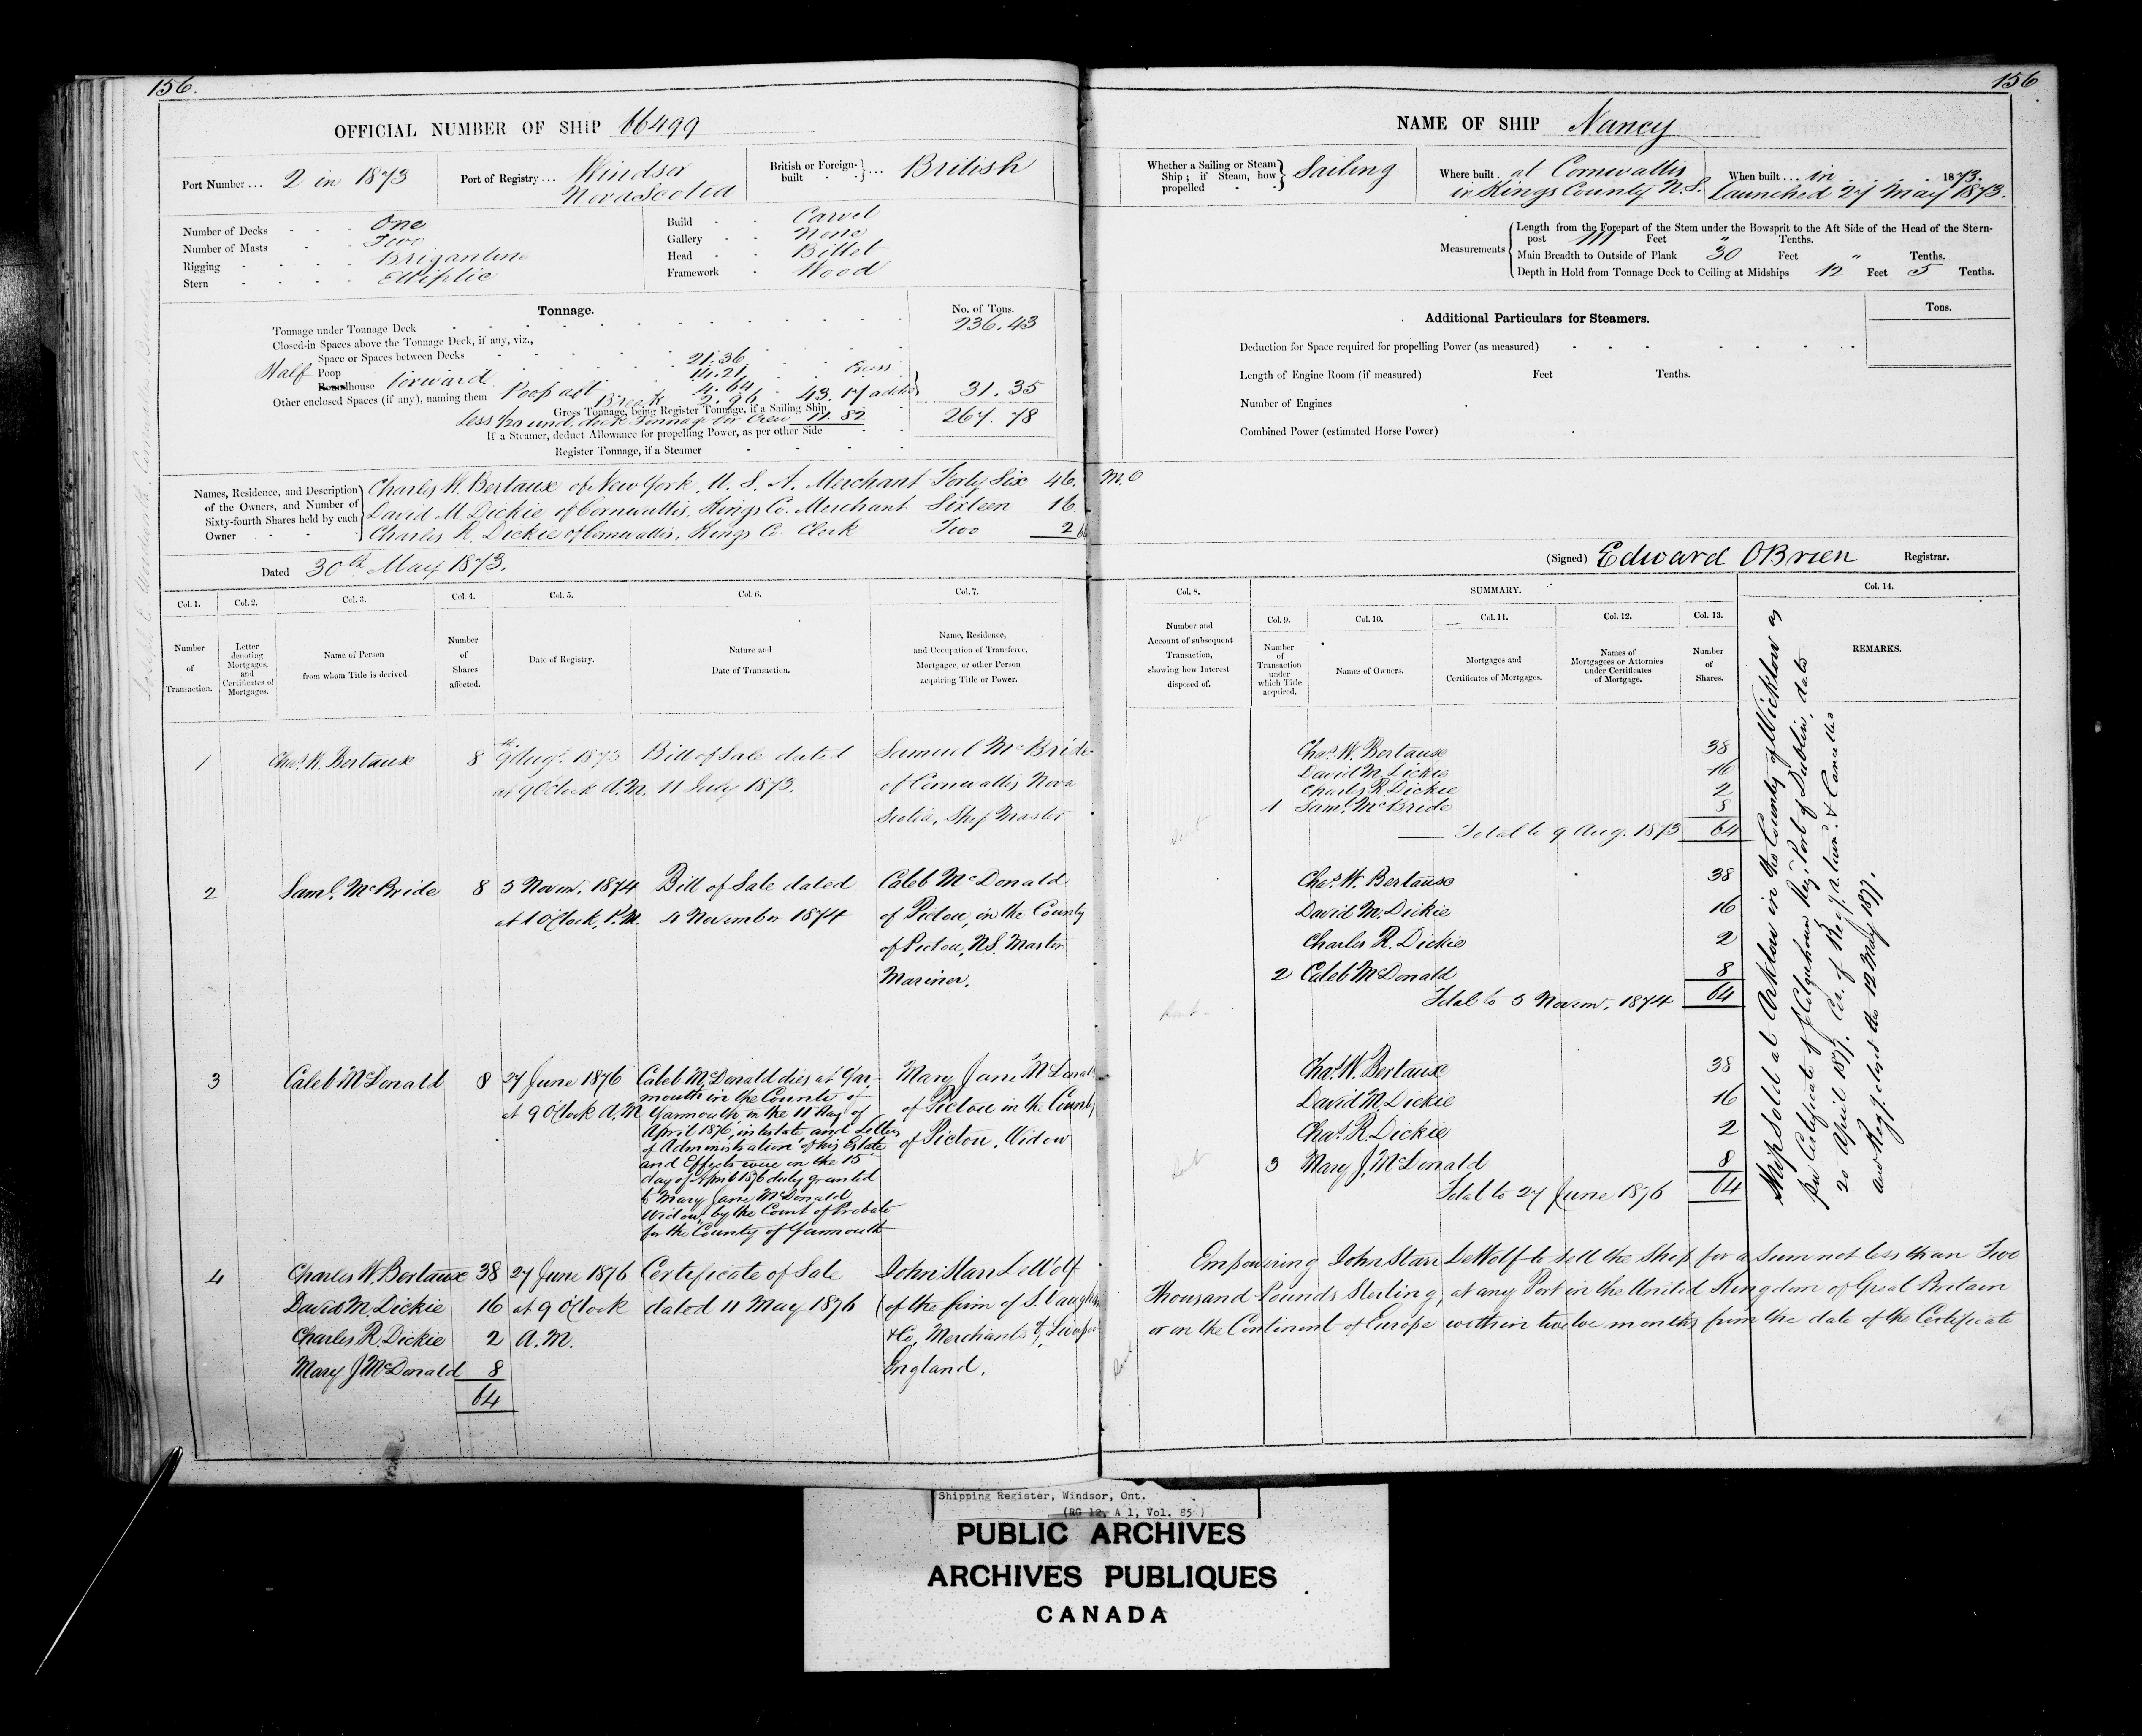 156.
OFFICIAL NUMBER OF SHIP 66499
Port Number ... 2 in 1873
Port of Registry ... Windsor
Nova Scotia
British or Foreign-built } ... British
Number of Decks One
Number of Masts Two
Rigging Brigantine
Stern Elliptic
Build Carvel
Gallery None
Head Billet
Framework Wood
Tonnage.
No. of Tons.
Tonnage under Tonnage Deck 236.43
Closed-in Spaces above the Tonnage Deck, if any, viz.,
Space or Spaces between Decks 21.36
Half Poop 14.21
Roundhouse Forward 4.64
Other enclosed Spaces (if any), naming them Poop aft Break 2.96 43.17 31.35
Gross Tonnage, being Register Tonnage, if a Sailing Ship 267.78
Less 1/20 und. deck Tonnage for Crew 11.82
If a Steamer, deduct Allowance for propelling Power, as per other Side
Register Tonnage, if a Steamer
Names, Residence, and Description of the Owners, and Number of Sixty-fourth Shares held by each Owner
Charles W. Bertaux of New York, U. S. A. Merchant Forty Six 46.
David M. Dickie of Cornwallis, Kings Co. Merchant Sixteen 16
Charles R. Dickie of Cornwallis, Kings Co. Clerk Two 2
Dated 30th May 1873.
Col. 1. Col. 2. Col. 3. Col. 4. Col. 5. Col. 6. Col. 7.
Number of Transaction.
Letter denoting Mortgages, and Certificates of Mortgages.
Name of Person from whom Title is derived
Number of Shares affected.
Date of Registry.
Nature and Date of Transaction.
Name, Residence, and Occupation of Transferee, Mortgagee, or other Person acquiring Title or Power.
1 Chas. W. Bertaux 8 9th Augt. 1873 Bill of Sale dated Samuel McBride
at 9 O'clock A.M. 11 July 1873. of Cornwallis Nova
Scotia, Ship Master
2 Saml. McBride 8 5 Novem. 1874 Bill of Sale dated Caleb McDonald
at 1 O'Clock, P.M. 4 November 1874 of Pictou, in the County
of Pictou, N.S. Master
Mariner.
3 Caleb McDonald 8 27 June 1876 Caleb McDonald died at Yar- Mary Jane McDonald
at 9 O'Clock A.M. mouth in the County of of Pictou in the County
Yarmouth on the 11 day of of Pictou. Widow
April 1876, intestate and Letters
of Administration of his Estate
and Effects were on the 15
day of April 1876 duly granted
to Mary Jane McDonald
Widow, by the Court of Probate
for the County of Yarmouth
4 Charles W. Bertaux 38 27 June 1876 Certificate of Sale John Starr DeWolf
David M. Dickie 16 at 9 O'Clock dated 11 May 1876 (of the firm of S. Vaughan
Charles R. Dickie 2 A.M. & Co, Merchants of Liverpool
Mary J McDonald 8 England.
64
156
NAME OF SHIP Nancy
Whether a Sailing or Steam Ship; if Steam, how propelled } Sailing
Where built . at Cornwallis
in Kings County N.S.
When built ... in 1873.
Launched 27 May 1873.
Measurements
Length from the Forepart of the Stem under the Bowsprit to the Aft Side of the Head of the Stern-
post 111 Feet " Tenths.
Main Breadth to Outside of Plank 30 Feet " Tenths.
Depth in Hold from Tonnage Deck to Ceiling at Midships 12 Feet 5 Tenths.
Additional Particulars for Steamers.
Tons.
Deduction for Space required for propelling Power (as measured)
Length of Engine Room (if measured) Feet Tenths.
Number of Engines
Combined Power (estimated Horse Power)
(Signed) Edward OBrien Registrar.
Col. 8. SUMMARY. Col. 14.
Col. 9. Col. 10. Col. 11. Col. 12. Col. 13.
Number and Account of subsequent Transaction, showing how Interest disposed of.
Number of Transaction under which Title acquired.
Names of Owners.
Mortgages and Certificates of Mortgages.
Names of Mortgagees or Attornies under Certificates of Mortgage.
Number of Shares.
REMARKS.
Chas. W. Bertaux 38
David M. Dickie 16
Charles R. Dickie 2
1 Saml. McBride 8
Total to 9 Aug. 1873 64
Chas. W. Bertaux 38
David M. Dickie 16
Charles R. Dickie 2
2 Caleb McDonald 8
Total to 5 Novem. 1874 64
Chas. W. Bertaux 38
David M. Dickie 16
Chas. R. Dickie 2
3 Mary J. McDonald 8
Total to 27 June 1876 64
Ship Sold at Arklow in the County of Wicklow as
per Certificate of J Colquhoun Reg. Port of Dublin, dated
20 April 1877. Cer. of Regy. & Cancelled
and Regy. closed the 12 May 1877.
Empowering John Starr DeWolf to sell the Ship for a Sum not less than Two
Thousand Pounds Sterling, at any Port in the United Kingdom of Great Britain
or on the Continent of Europe within twelve months from the date of the Certificate
Shipping Register, Windsor, Ont.
(RG 12, A 1, Vol. 85)
PUBLIC ARCHIVES
ARCHIVES PUBLIQUES
CANADA